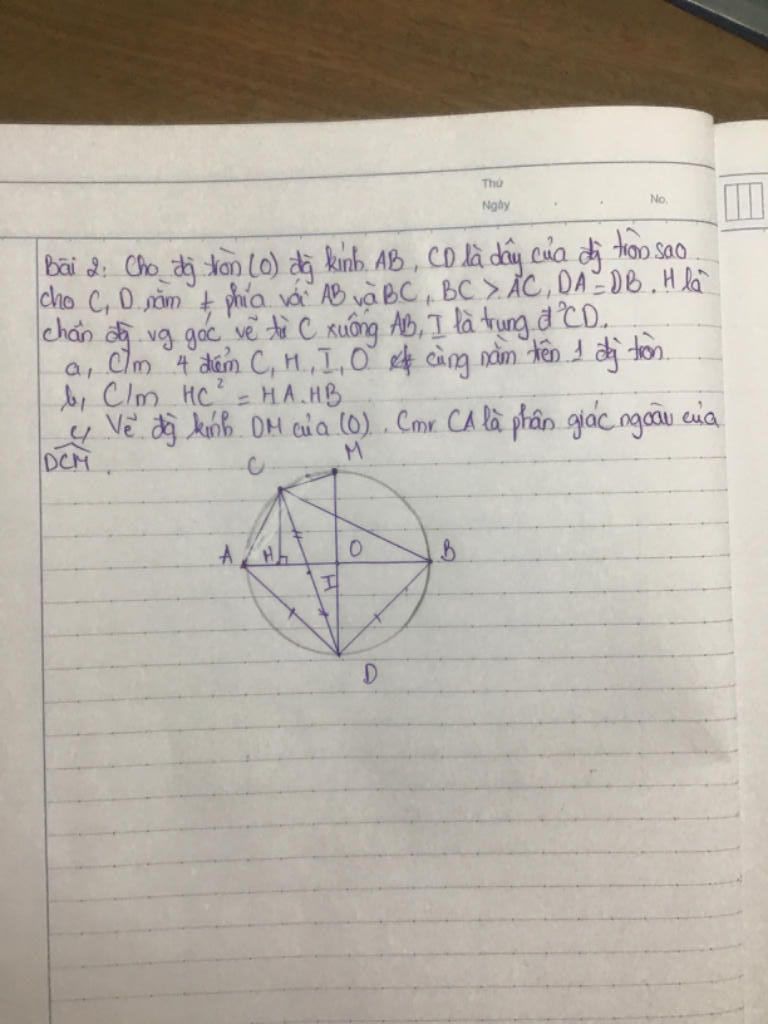 Thứ
Ngày . . No.
Bài 2: Cho đg tròn (O) đg kính AB, CD là dây của đg tròn sao
cho C, D nằm ≠ phía với AB và BC, BC > AC, DA = DB. H là
chân đg vg góc vẽ từ C xuống AB, I là trung đ² CD.
a, C/m 4 điểm C, H, I, O cùng nằm trên 1 đg tròn
b, C/m HC² = HA.HB
c, Vẽ đg kính DM của (O). Cmr CA là phân giác ngoài của
DCM.
C M
A H O B
I
D